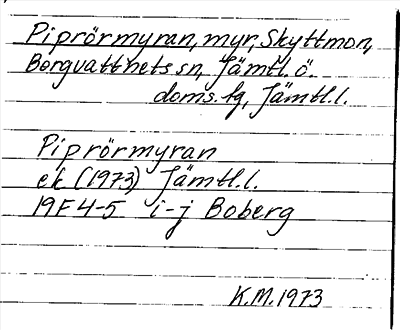 Piprörmyran, myr, Skyttmon,
Borgvattnets sn, Jämtl. ö.
doms.lg, Jämtl.l.
Piprörmyran
ek (1973) Jämtl.l.
19F 4-5 i-j Boberg
K.M. 1973